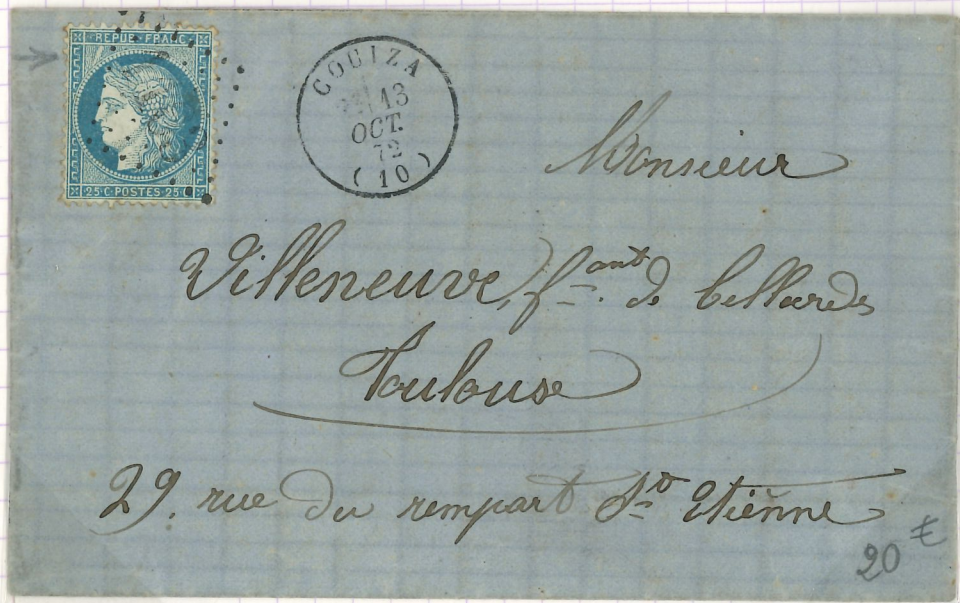 REPUB. FRANC.
25 · C · POSTES · 25 · C
COUIZA
13
OCT.
72
(10)
Monsieur
Villeneuve, fant. de billards
Toulouse
29. rue du rempart St Etienne
20 €